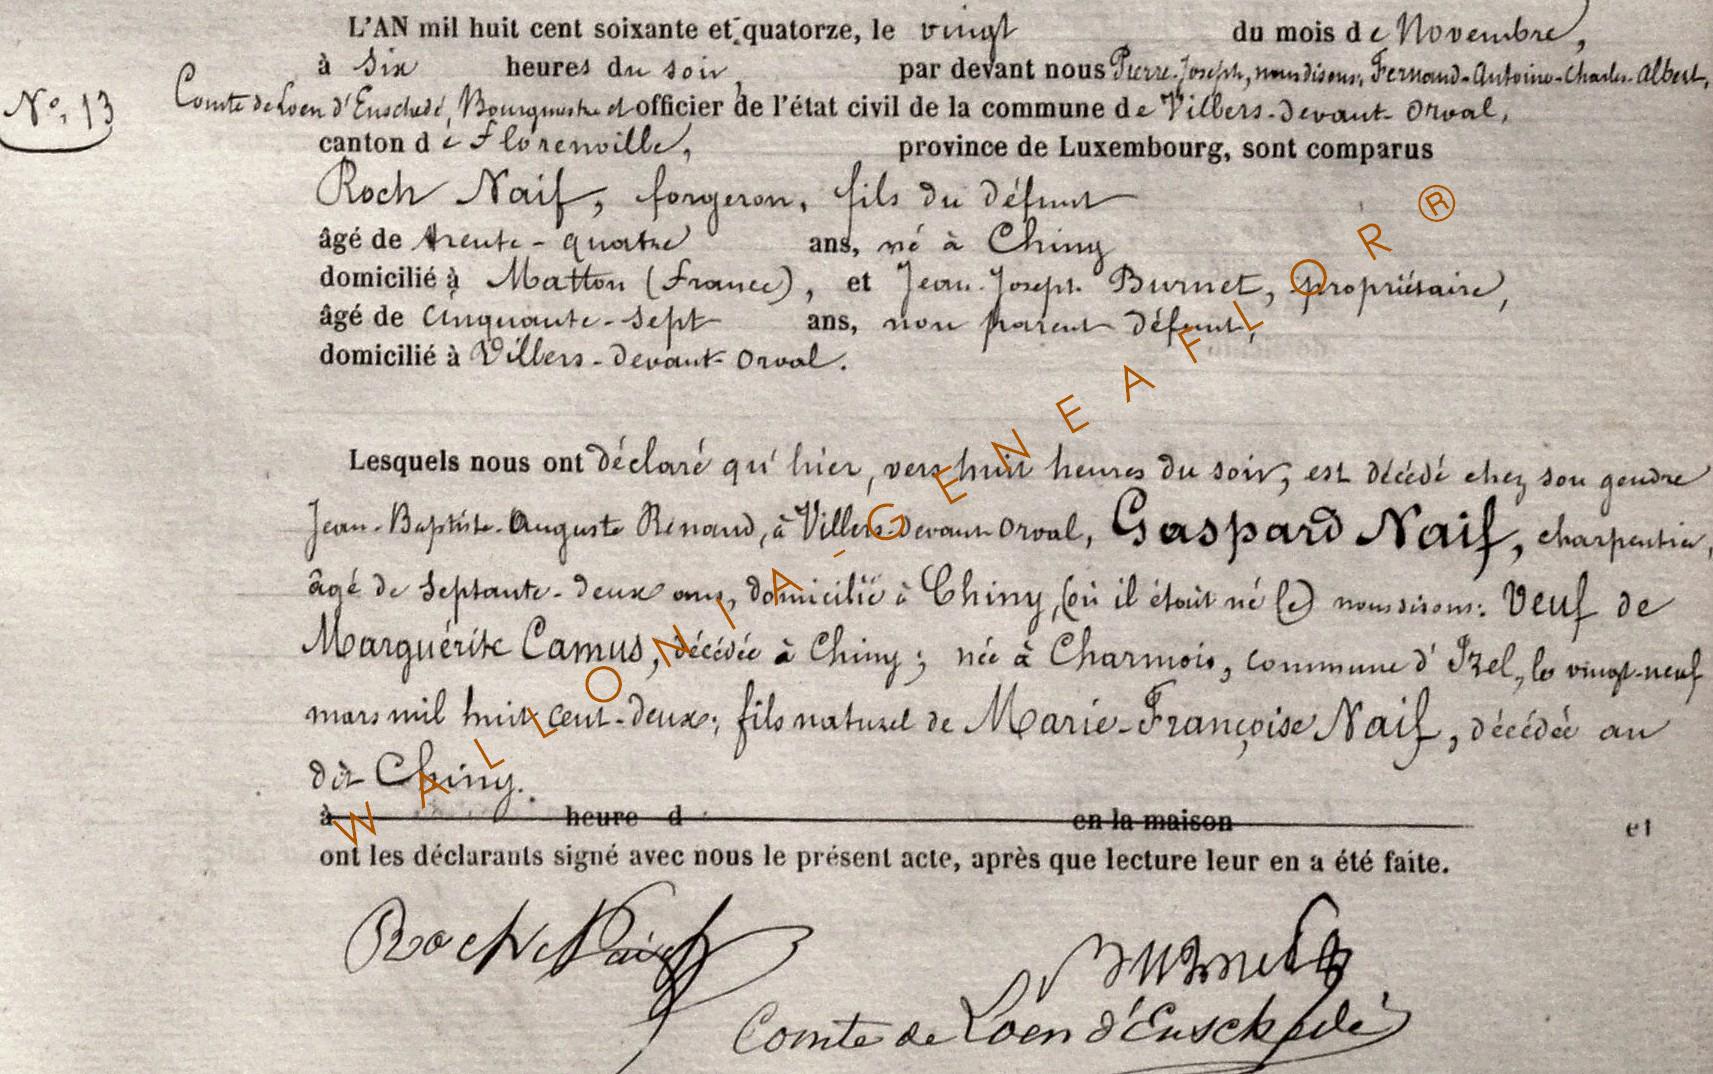 L'AN mil huit cent soixante et quatorze, le vingt du mois de Novembre,
à six heures du soir, par devant nous Pierre-Joseph, nous disons, Fernand-Antoine-Charles-Albert,
N°. 13
Comte de Loen d'Enschedé, Bourgmestre et officier de l'état civil de la commune de Villers-devant-Orval,
canton de Florenville, province de Luxembourg, sont comparus
Roch Naif, forgeron, fils du défunt
âgé de trente-quatre ans, né à Chiny
domicilié à Matton (France), et Jean-Joseph Burnet, propriétaire,
âgé de cinquante-sept ans, non parent défunt,
domicilié à Villers-devant-Orval.
Lesquels nous ont déclaré qu'hier, vers huit heures du soir, est décédé chez son gendre
Jean-Baptiste-Auguste Renaud, à Villers-devant-Orval, Gaspard Naif, charpentier,
âgé de septante-deux ans, domicilié à Chiny, (où il était né (le) nous disons: Veuf de
Marguérite Camus, décédée à Chiny; née à Charmois, commune d'Izel, le vingt-neuf
mars mil huit cent-deux; fils naturel de Marie-Françoise Naif, décédée au
dit Chiny.
à heure d en la maison et
ont les déclarants signé avec nous le présent acte, après que lecture leur en a été faite.
Roch Naif
Burnet
Comte de Loen d'Enschedé
WALLONIA-GENEAFLOR ®